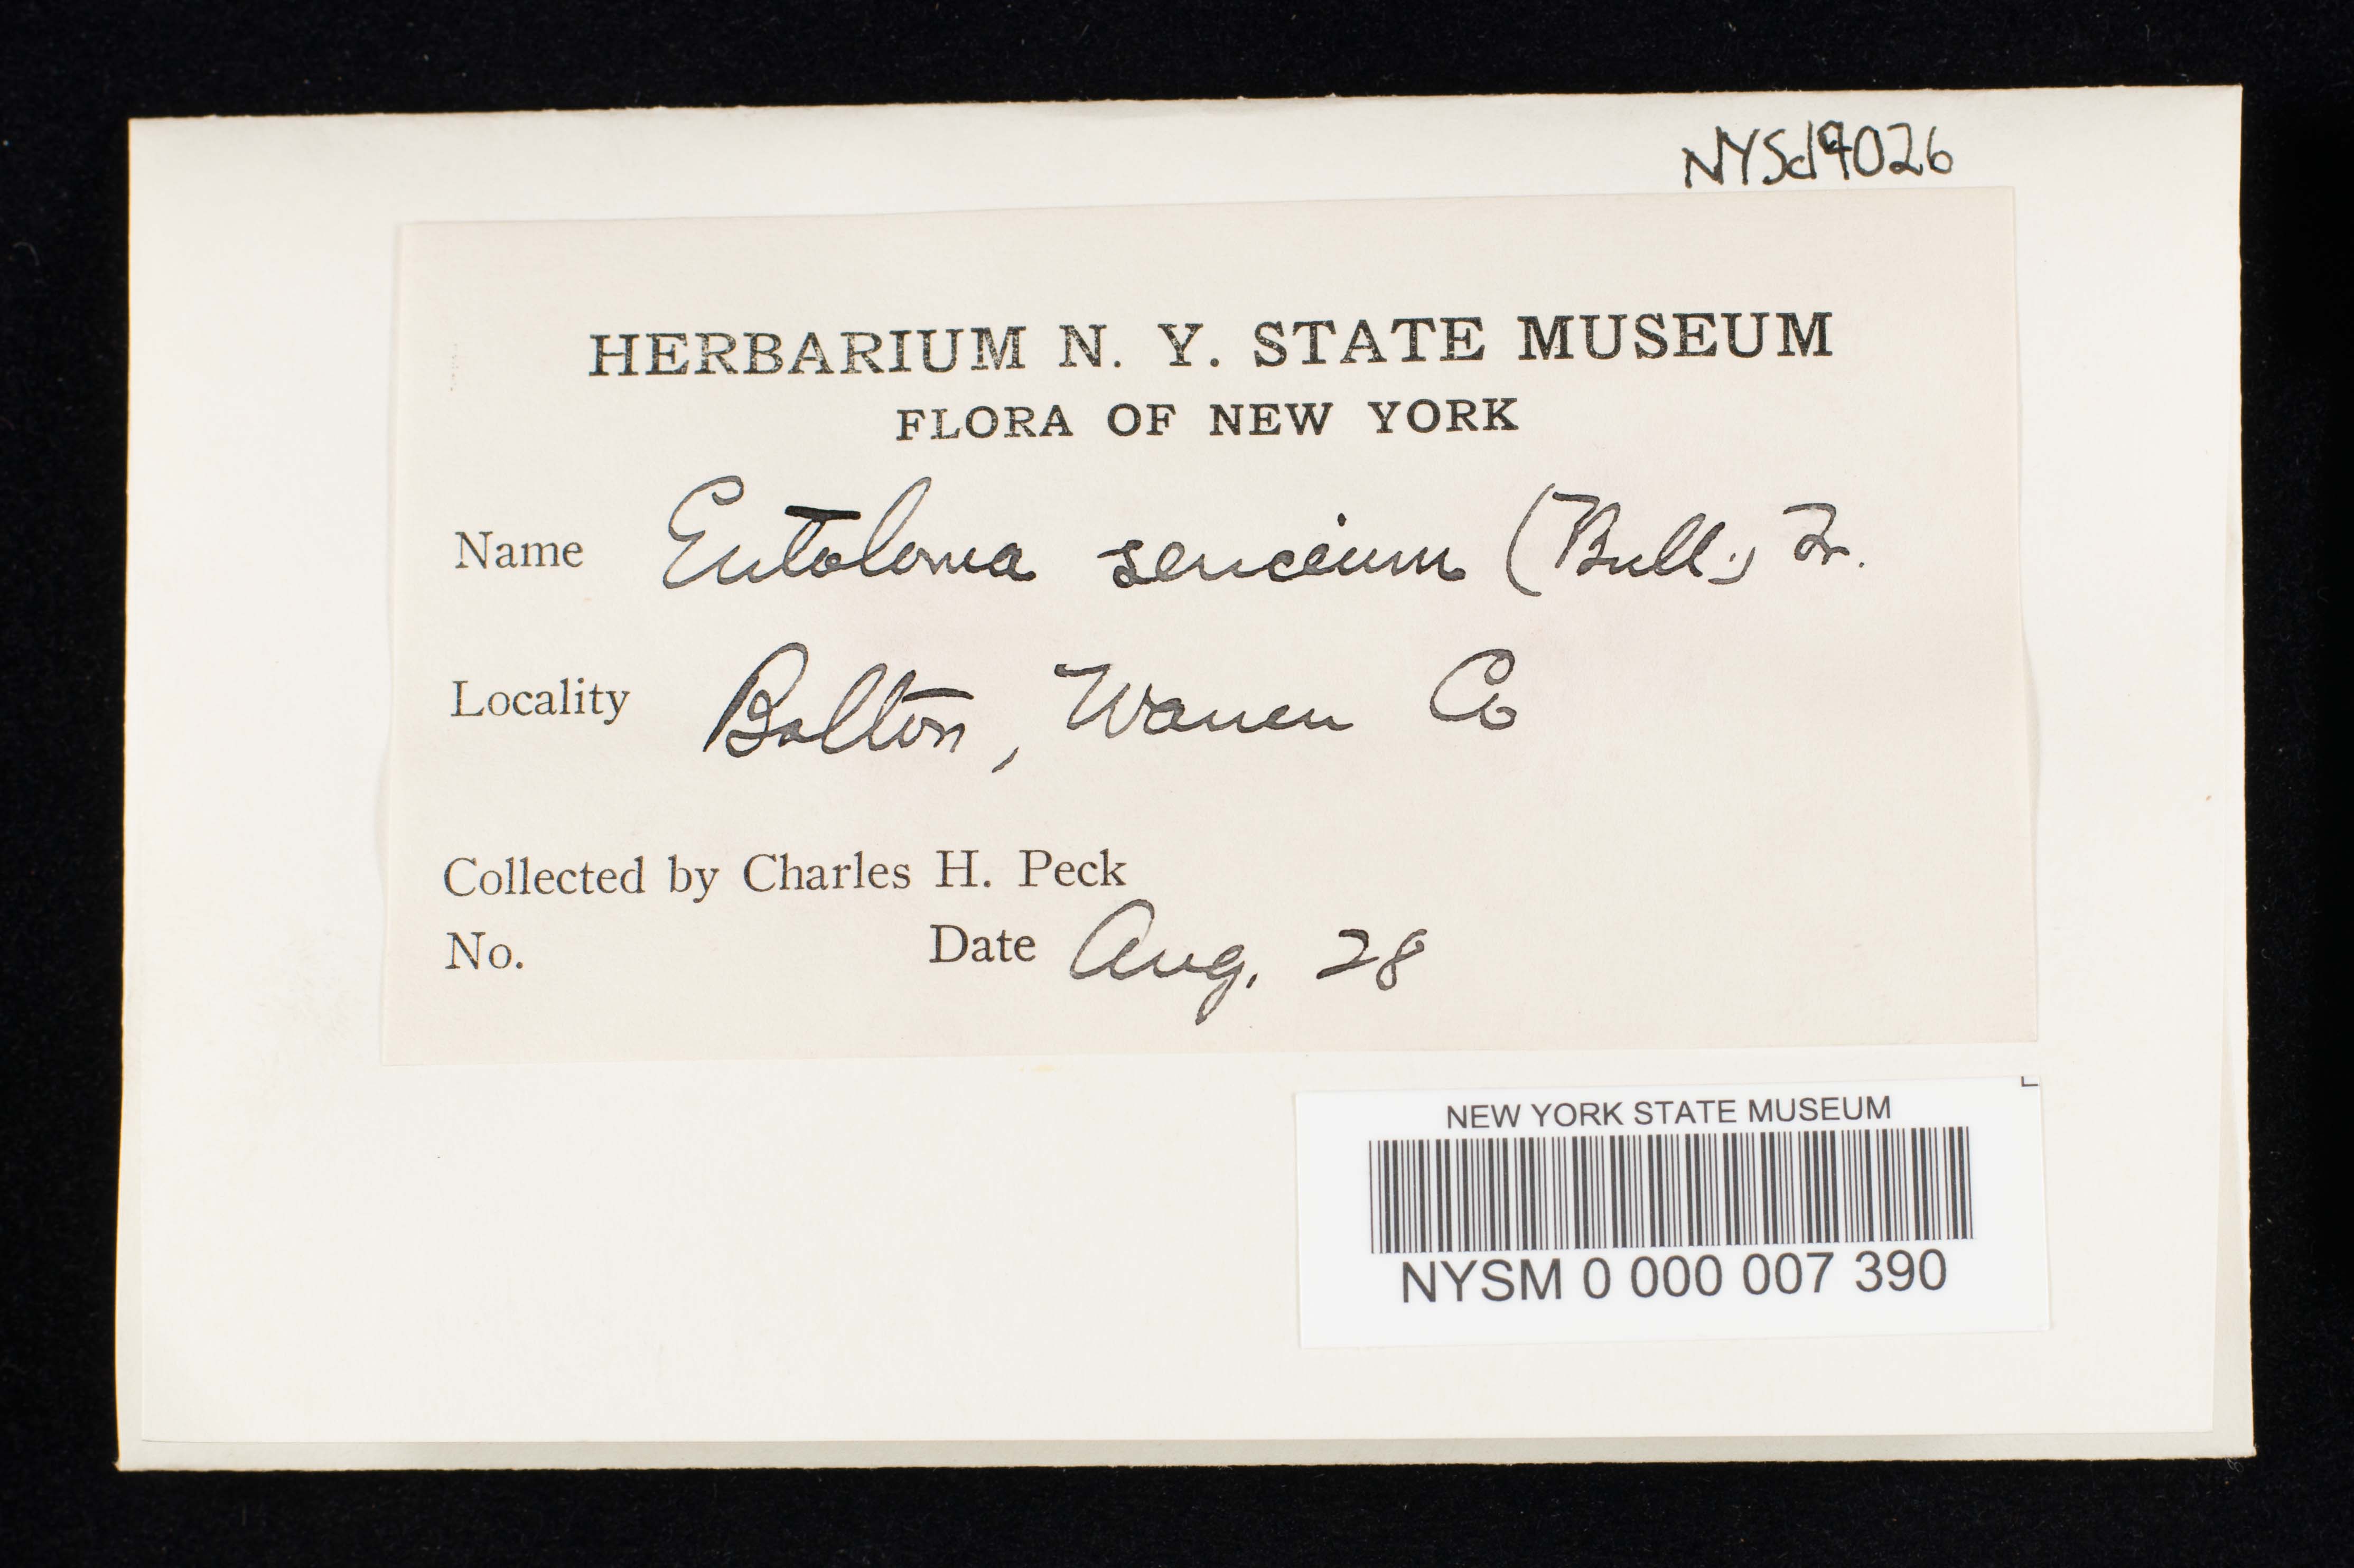 NYSd9026
HERBARIUM N. Y. STATE MUSEUM
FLORA OF NEW YORK
Name Entoloma sericeum (Bull.) Fr.
Locality Bolton, Warren Co
Collected by Charles H. Peck
No. Date Aug. 28
NEW YORK STATE MUSEUM
NYSM 0 000 007 390